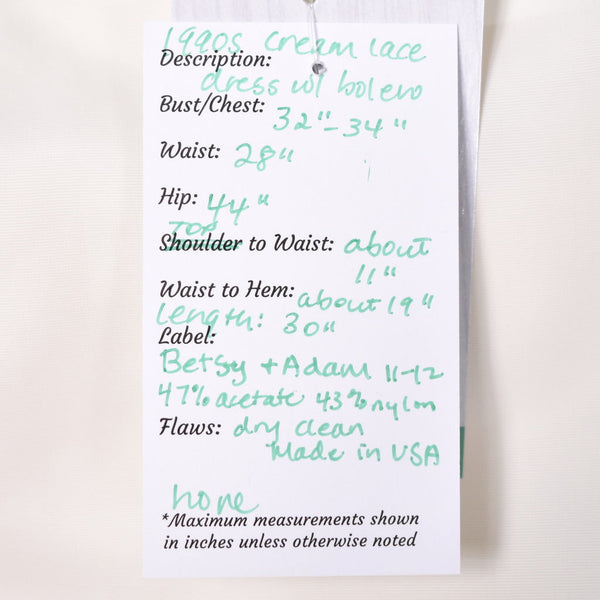 1990s cream lace
Description:
dress w/ bolero
Bust/Chest: 32"-34"
Waist: 28"
Hip: 44"
TOP
Shoulder to Waist: about
11"
Waist to Hem: about 19"
Length: 30"
Label:
Betsy + Adam 11-12
47% acetate 43% nylon
Flaws: dry clean
Made in USA
none
*Maximum measurements shown
in inches unless otherwise noted